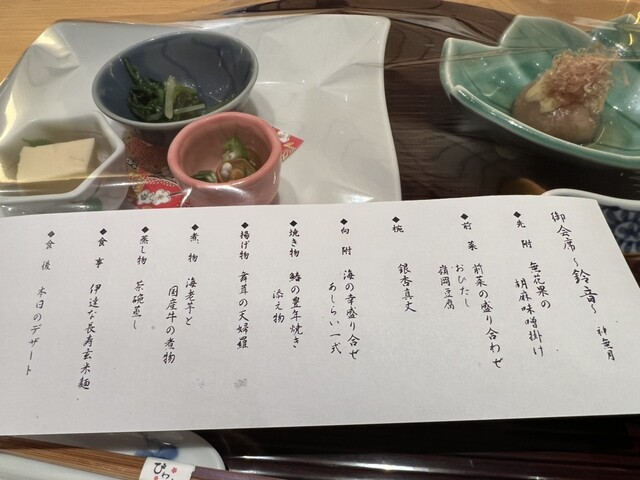 御会席～鈴音～
神無月
◆先附 無花果の
胡麻味噌掛け
◆前菜 前菜の盛り合わせ
おひたし
嶺岡豆腐
◆椀 銀杏真丈
◆向附 海の幸盛り合せ
あしらい一式
◆焼き物 鰆の豊年焼き
添え物
◆揚げ物 舞茸の天婦羅
◆煮物 海老芋と
国産牛の煮物
◆蒸し物 茶碗蒸し
◆食事 伊達な長寿玄米麺
◆食後 本日のデザート